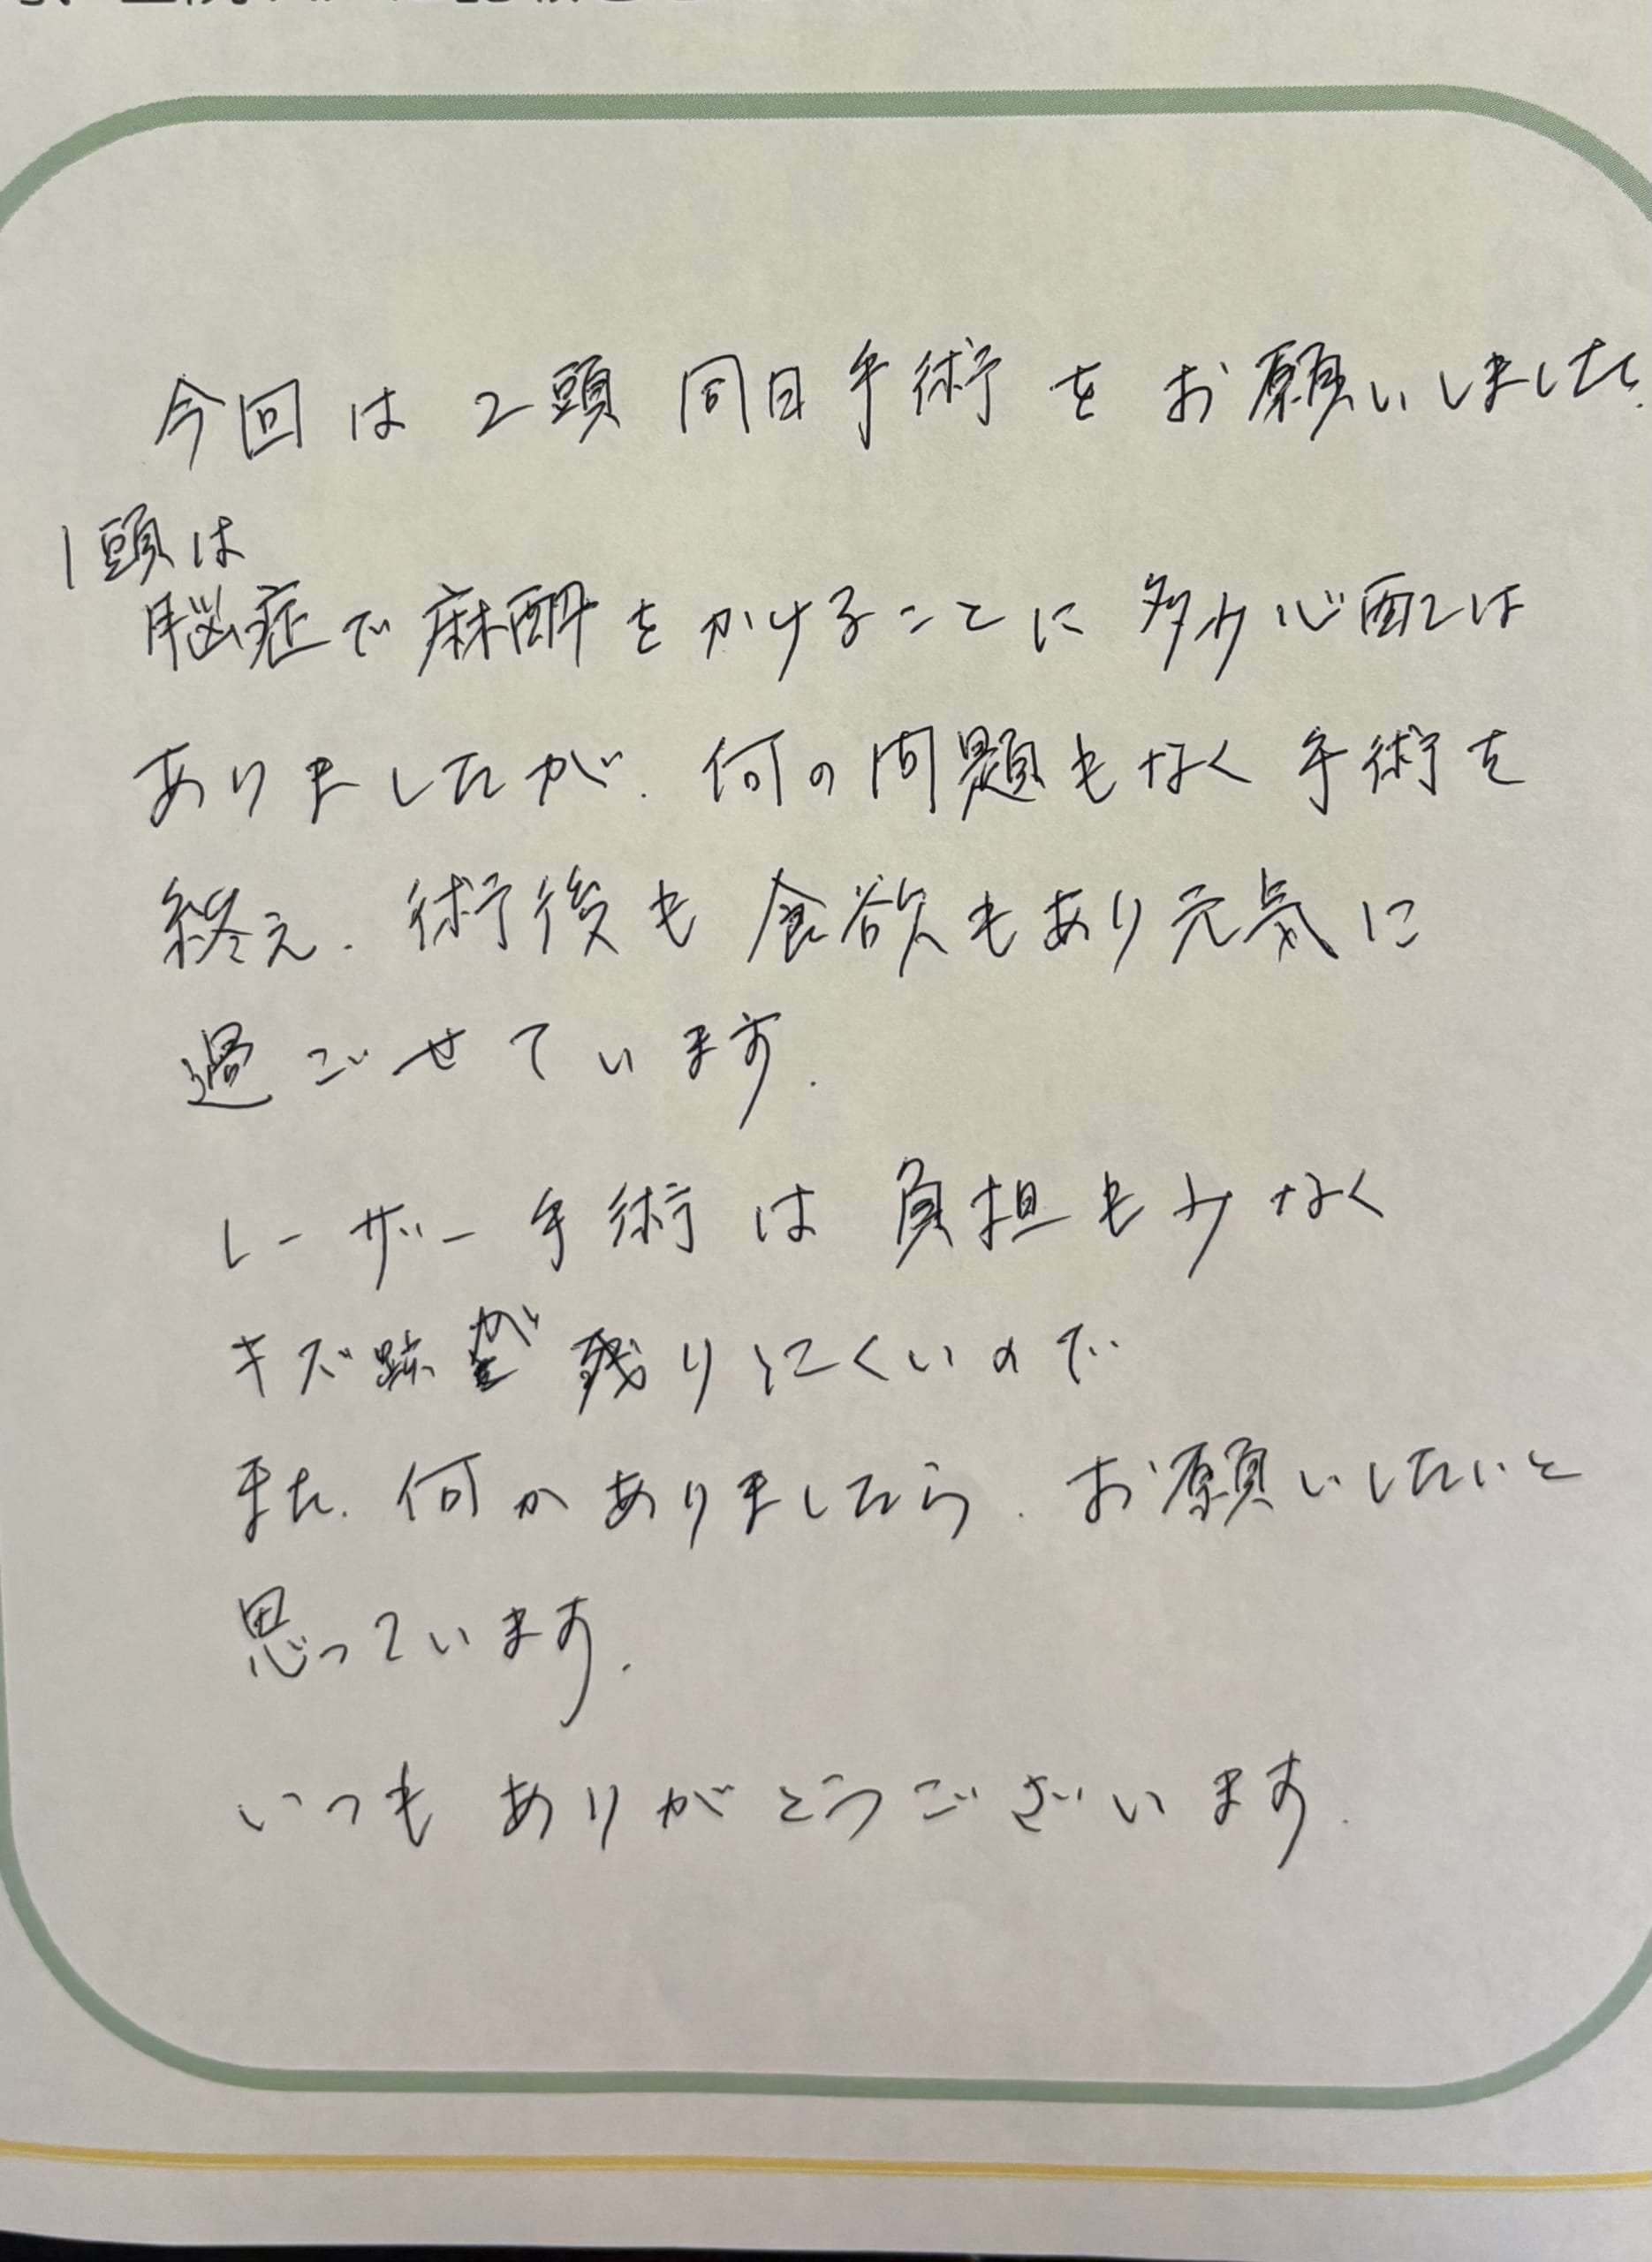 今回は2頭同日手術をお願いしました.
1頭は
脳症で麻酔をかけることに多少心配は
ありましたが.何の問題もなく手術を
終え.術後も食欲もあり元気に
過ごせています.
レーザー手術は負担も少なく
キズ跡が残りにくいので
また.何かありましたら.お願いしたいと
思っています.
いつもありがとうございます.